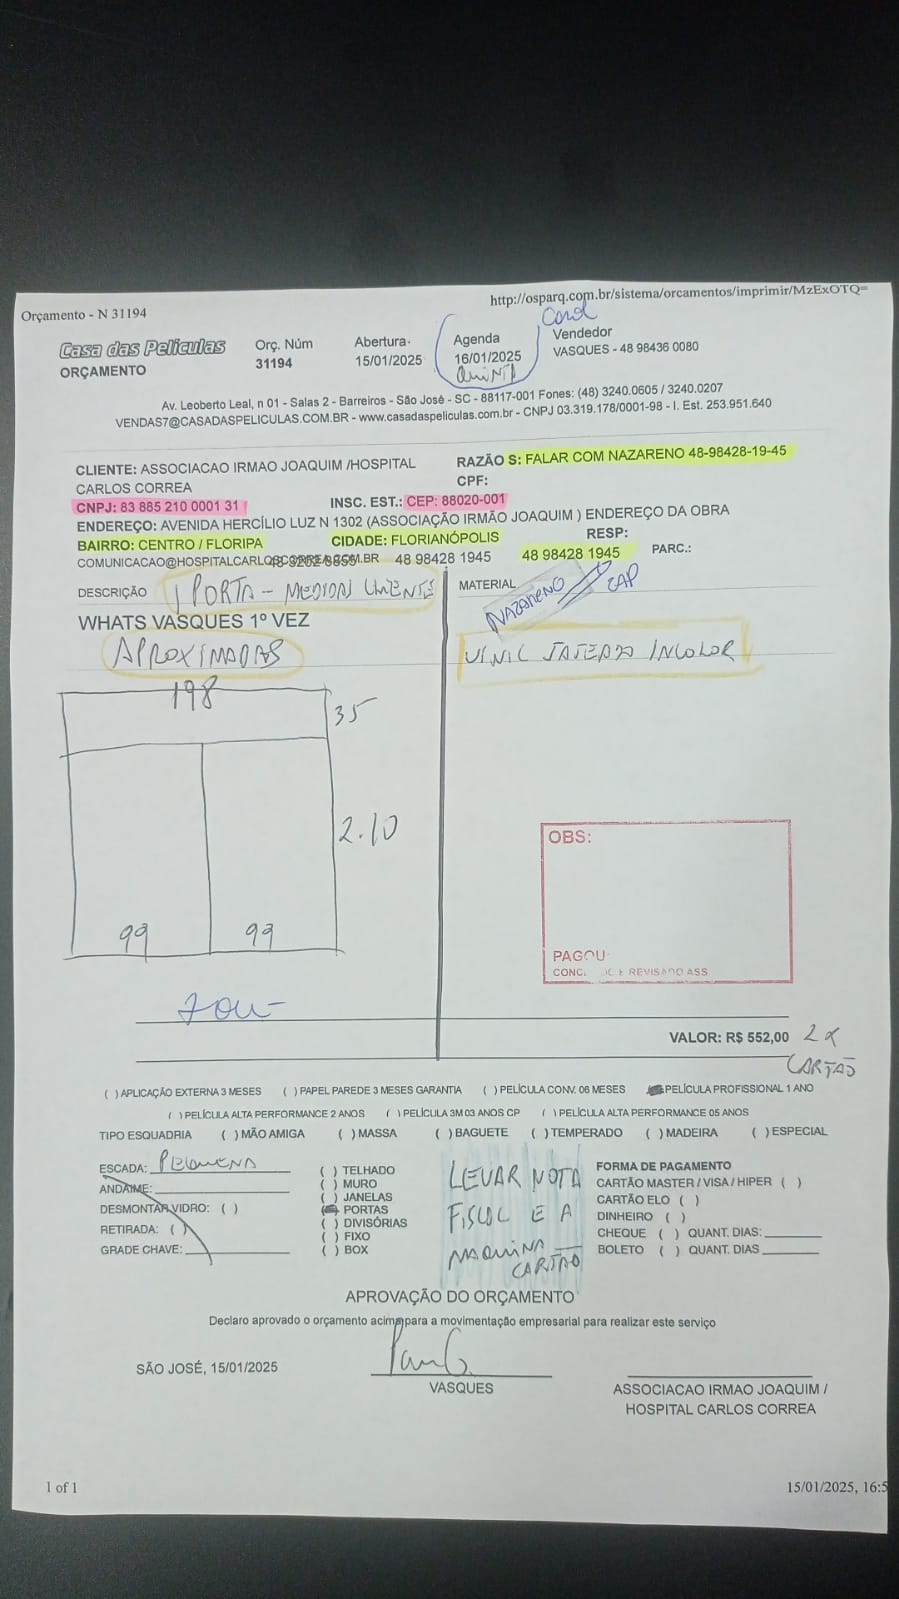 Orçamento - N 31194
http://osparq.com.br/sistema/orcamentos/imprimir/MzExOTQ=
Carol
Casa das Películas
ORÇAMENTO
Orç. Núm
31194
Abertura
15/01/2025
Agenda
16/01/2025
QUINTA
Vendedor
VASQUES - 48 98436 0080
Av. Leoberto Leal, n 01 - Salas 2 - Barreiros - São José - SC - 88117-001 Fones: (48) 3240.0605 / 3240.0207
VENDAS7@CASADASPELICULAS.COM.BR - www.casadaspeliculas.com.br - CNPJ 03.319.178/0001-98 - I. Est. 253.951.640
CLIENTE: ASSOCIACAO IRMAO JOAQUIM /HOSPITAL
CARLOS CORREA
RAZÃO S: FALAR COM NAZARENO 48-98428-19-45
CPF:
CNPJ: 83 885 210 0001 31
INSC. EST.: CEP: 88020-001
ENDEREÇO: AVENIDA HERCÍLIO LUZ N 1302 (ASSOCIAÇÃO IRMÃO JOAQUIM ) ENDEREÇO DA OBRA
BAIRRO: CENTRO / FLORIPA
CIDADE: FLORIANÓPOLIS
RESP:
COMUNICACAO@HOSPITALCARLOSCORREA.COM.BR 48 98428 1945
48 98428 1945
PARC.:
DESCRIÇÃO 1 PORTA - MEDIDAS CLIENTE
MATERIAL NAZARENO
WHATS VASQUES 1º VEZ
APROXIMADAS
VINIL JATEADO INCOLOR
198
35
2.10
99 99
OBS:
PAGOU
REVISADO ASS
VALOR: R$ 552,00 2X
CARTÃO
( ) APLICAÇÃO EXTERNA 3 MESES ( ) PAPEL PAREDE 3 MESES GARANTIA ( ) PELÍCULA CONV. 06 MESES PELÍCULA PROFISSIONAL 1 ANO
( ) PELÍCULA ALTA PERFORMANCE 2 ANOS ( ) PELÍCULA 3M 03 ANOS CP ( ) PELÍCULA ALTA PERFORMANCE 05 ANOS
TIPO ESQUADRIA ( ) MÃO AMIGA ( ) MASSA ( ) BAGUETE ( ) TEMPERADO ( ) MADEIRA ( ) ESPECIAL
ESCADA: PEQUENA
ANDAIME:
DESMONTAR VIDRO: ( )
RETIRADA: ( )
GRADE CHAVE:
( ) TELHADO
( ) MURO
( ) JANELAS
PORTAS
( ) DIVISÓRIAS
( ) FIXO
( ) BOX
LEVAR NOTA
FISCAL E A
MAQUINA
CARTÃO
FORMA DE PAGAMENTO
CARTÃO MASTER / VISA / HIPER ( )
CARTÃO ELO ( )
DINHEIRO ( )
CHEQUE ( ) QUANT. DIAS:
BOLETO ( ) QUANT. DIAS
APROVAÇÃO DO ORÇAMENTO
Declaro aprovado o orçamento acima para a movimentação empresarial para realizar este serviço
SÃO JOSÉ, 15/01/2025
VASQUES
ASSOCIACAO IRMAO JOAQUIM /
HOSPITAL CARLOS CORREA
1 of 1
15/01/2025, 16:5